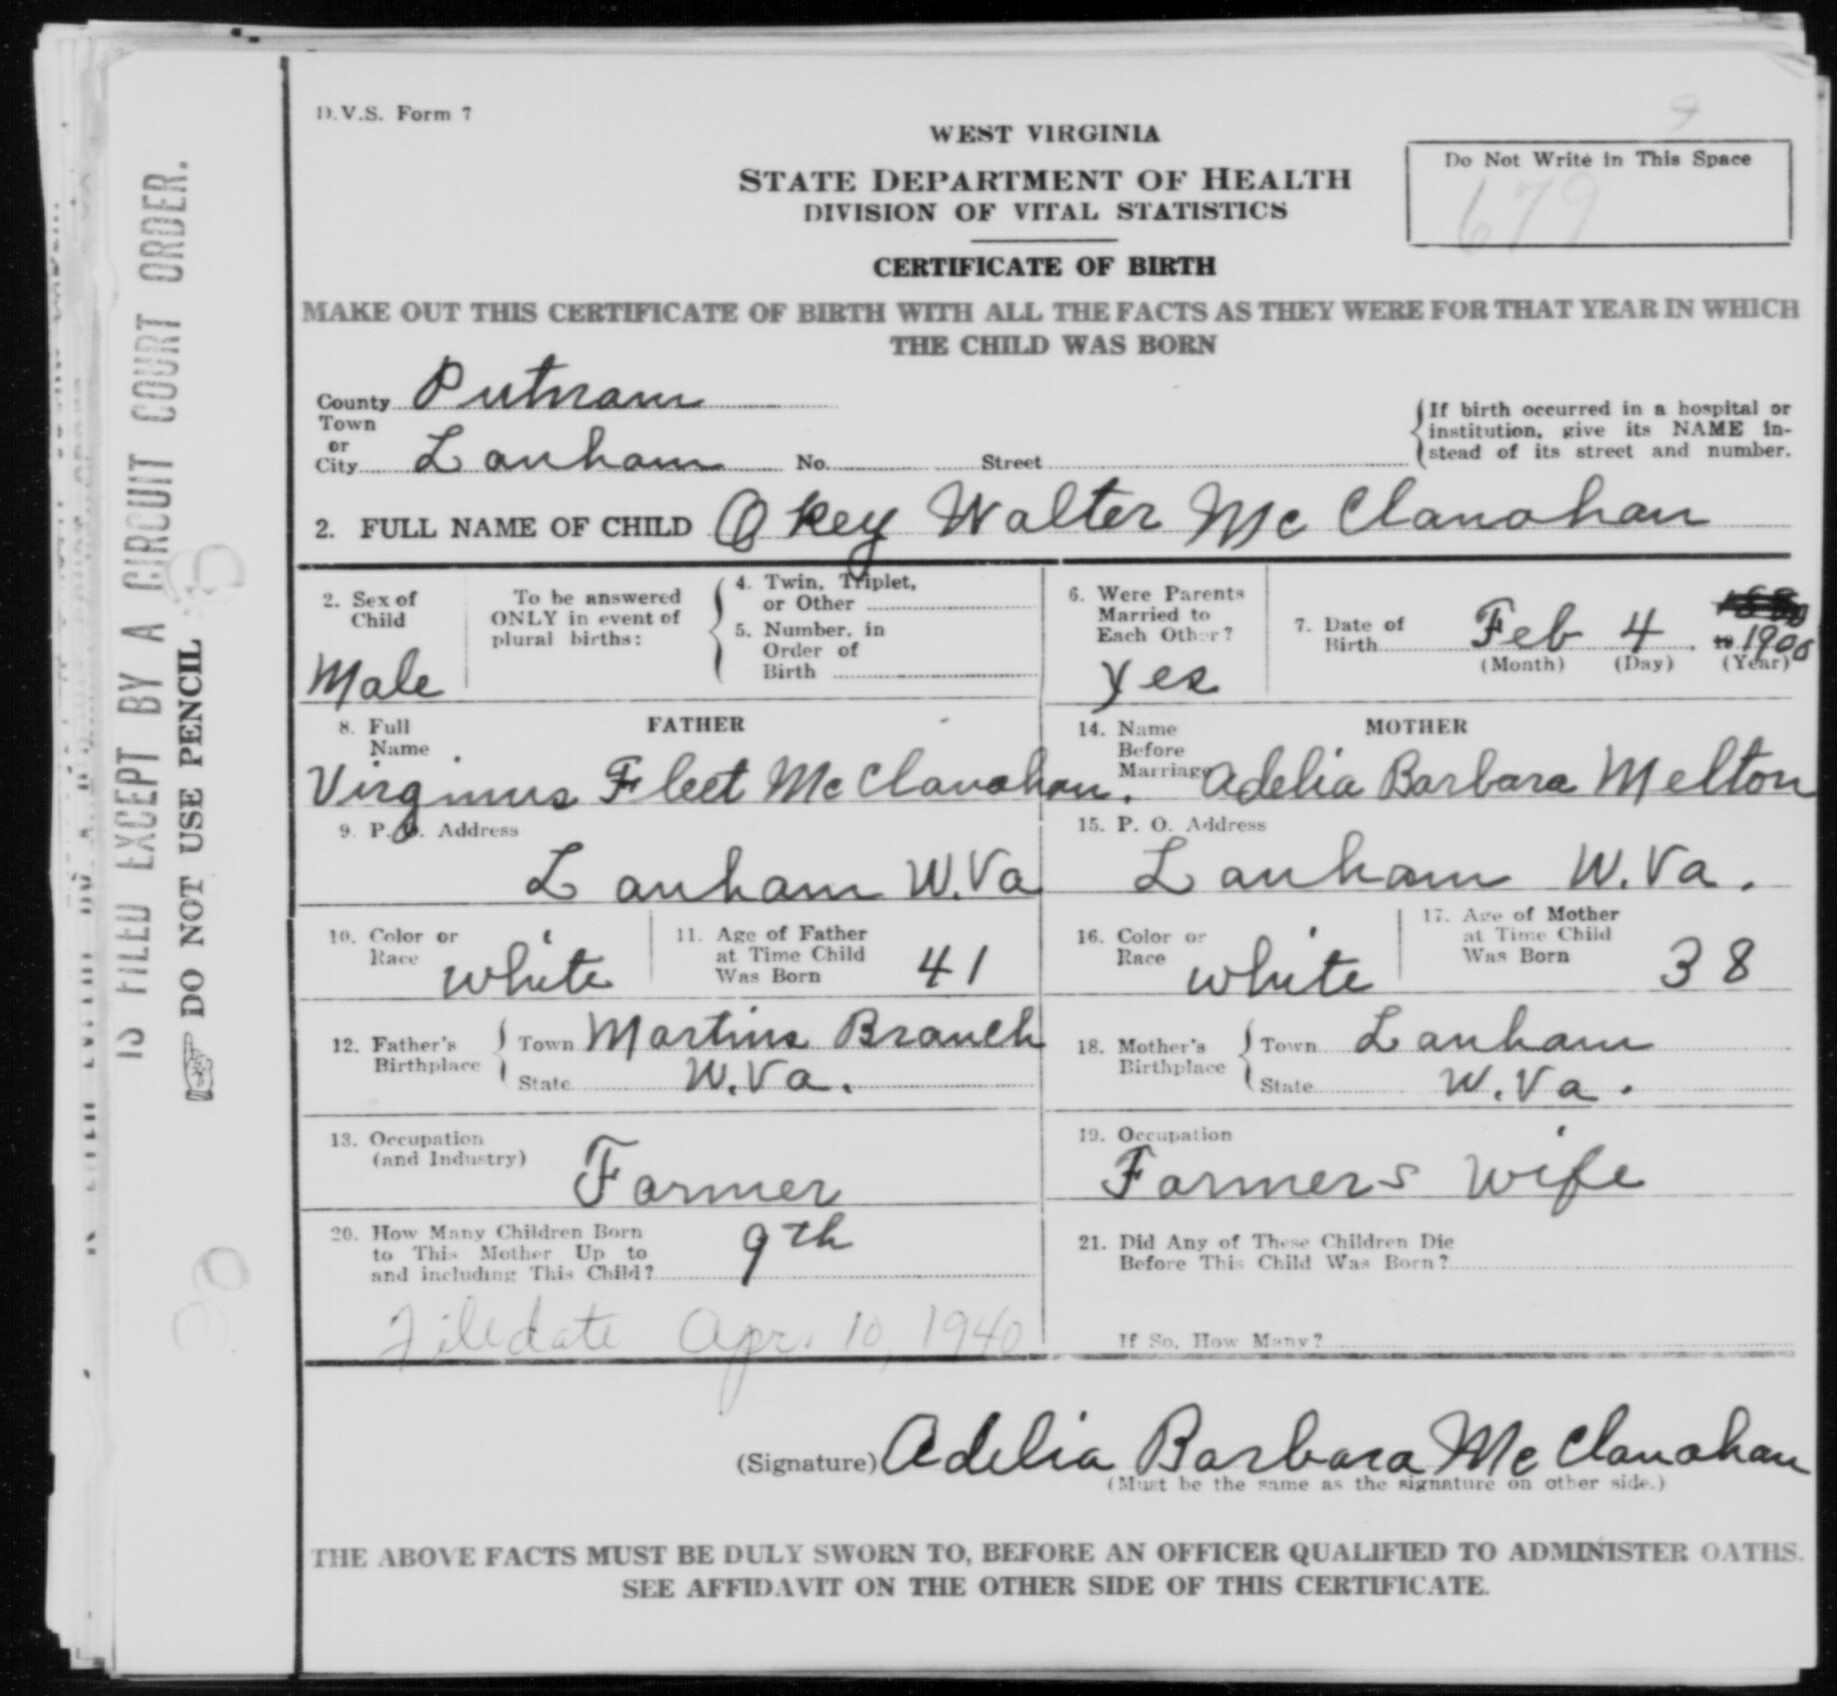 D.V.S. Form 7
WEST VIRGINIA
STATE DEPARTMENT OF HEALTH
DIVISION OF VITAL STATISTICS
Do Not Write in This Space
679
CERTIFICATE OF BIRTH
MAKE OUT THIS CERTIFICATE OF BIRTH WITH ALL THE FACTS AS THEY WERE FOR THAT YEAR IN WHICH
THE CHILD WAS BORN
County Putnam
Town
or
City Lanham No. Street
If birth occurred in a hospital or
institution, give its NAME in-
stead of its street and number.
2. FULL NAME OF CHILD Okey Walter McClanahan
2. Sex of
Child
Male
To be answered
ONLY in event of
plural births:
4. Twin, Triplet,
or Other
5. Number, in
Order of
Birth
6. Were Parents
Married to
Each Other?
Yes
7. Date of
Birth Feb 4, 1900
(Month) (Day) (Year)
8. Full
Name
FATHER
Virginius Fleet McClanahan.
14. Name
Before
Marriage
MOTHER
Adelia Barbara Melton
9. P. O. Address
Lanham W.Va
15. P. O. Address
Lanham W.Va.
10. Color or
Race white
11. Age of Father
at Time Child
Was Born 41
16. Color or
Race white
17. Age of Mother
at Time Child
Was Born 38
12. Father's
Birthplace
Town Martins Branch
State W.Va.
18. Mother's
Birthplace
Town Lanham
State W.Va.
13. Occupation
(and Industry)
Farmer
19. Occupation
Farmers wife
20. How Many Children Born
to This Mother Up to
and including This Child? 9th
21. Did Any of These Children Die
Before This Child Was Born?
If So, How Many?
Filedate Apr. 10, 1940
(Signature) Adelia Barbara McClanahan
(Must be the same as the signature on other side.)
THE ABOVE FACTS MUST BE DULY SWORN TO, BEFORE AN OFFICER QUALIFIED TO ADMINISTER OATHS.
SEE AFFIDAVIT ON THE OTHER SIDE OF THIS CERTIFICATE.
IS FILED EXCEPT BY A CIRCUIT COURT ORDER.
DO NOT USE PENCIL